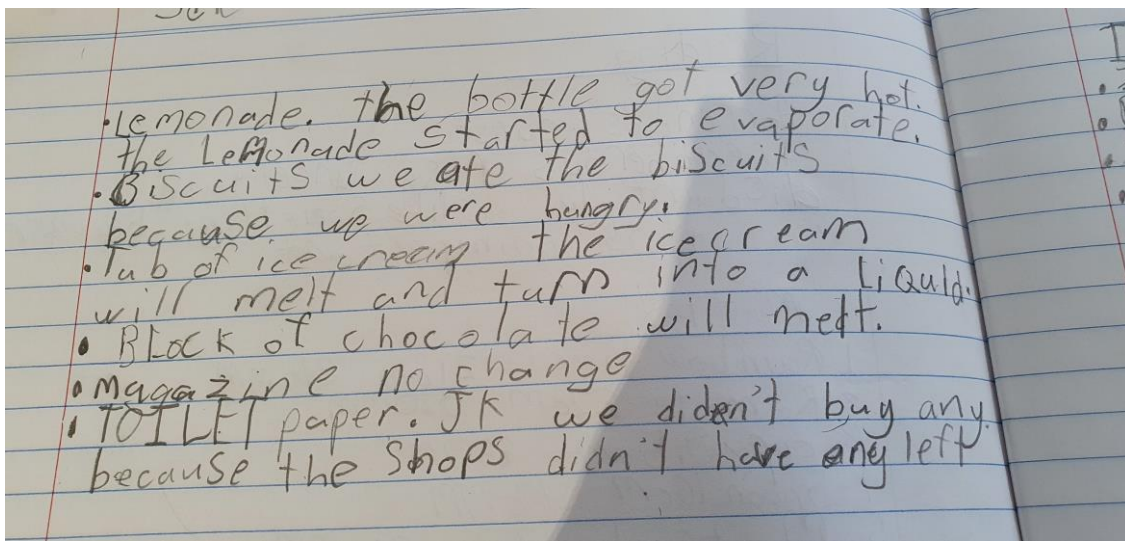 • Lemonade. the bottle got very hot.
the Lemonade started to evaporate.
• Biscuits we ate the biscuits
because we were hungry.
• Tub of ice cream the icecream
will melt and turn into a Liquid.
• Block of chocolate will melt.
• magazine no change
• TOILET paper. JK we diden't buy any
because the shops didn't have any left